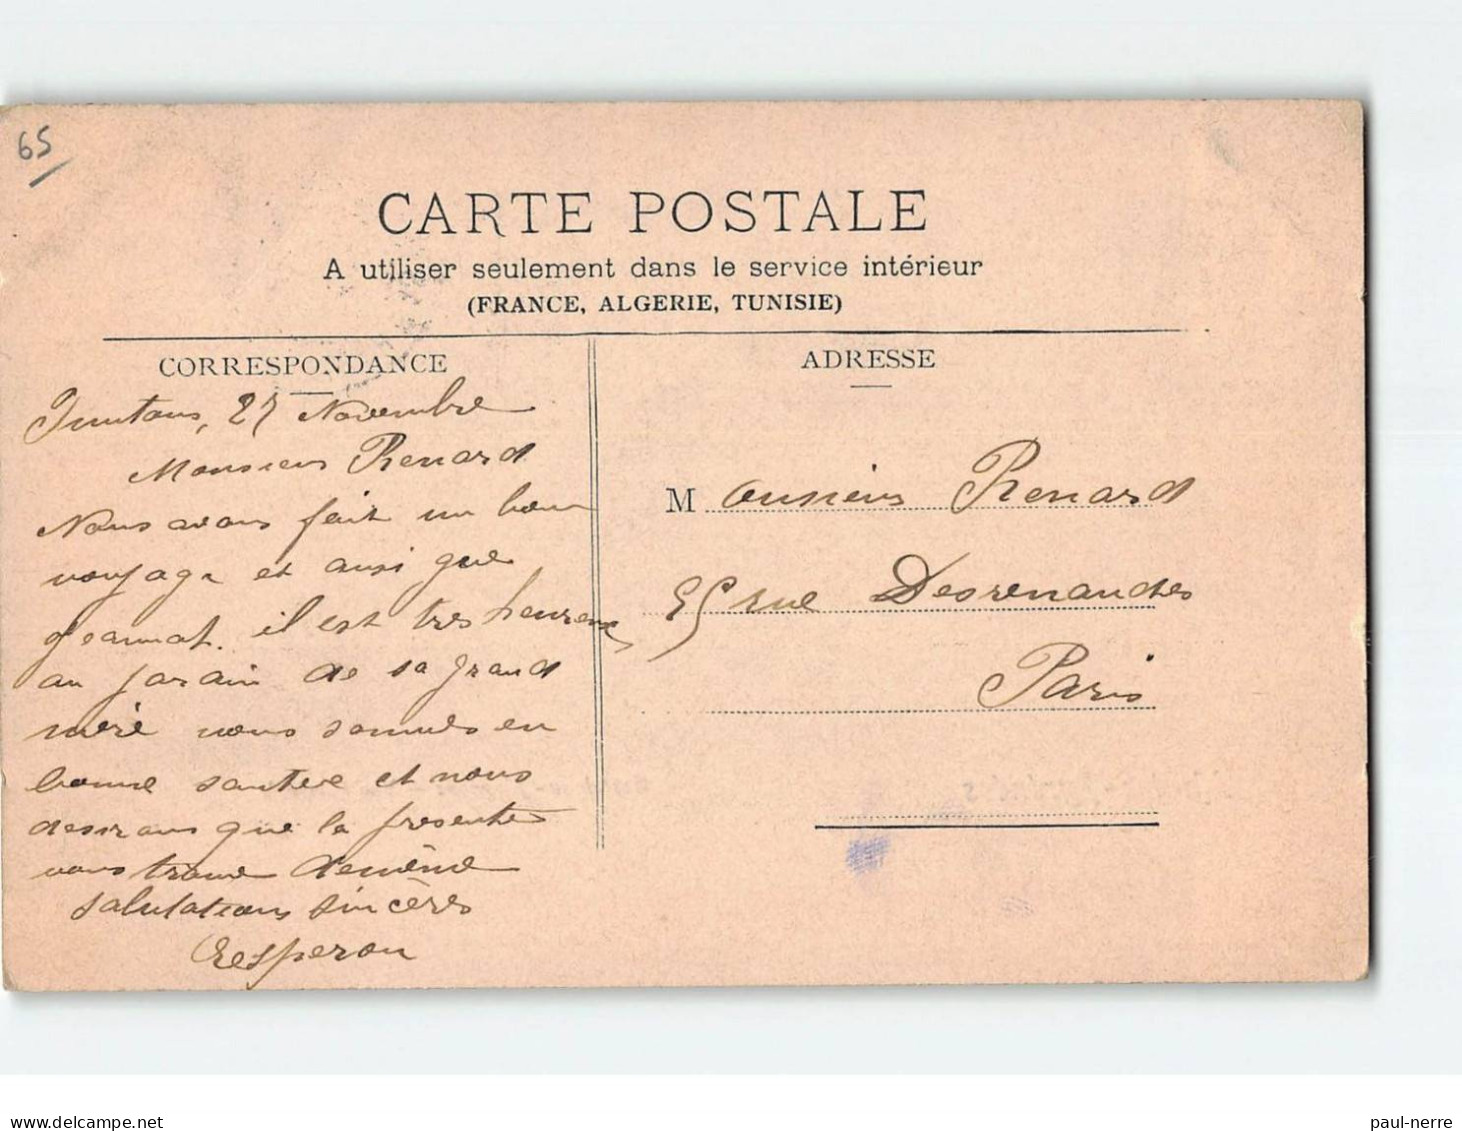 65
CARTE POSTALE
A utiliser seulement dans le service intérieur
(FRANCE, ALGERIE, TUNISIE)
CORRESPONDANCE
27 Novembre
Monsieur Renard
Nous avons fait un bon
voyage et ausi que
Jeannot. il est tres heureux
au jardin de sa grand
mère nous sommes en
bonne santée et nous
desirons que la presente
vous trouve demême
salutations sincères
Lesperon
ADRESSE
Monsieur Renard
25 rue Desrenaudes
Paris
paul-nerre